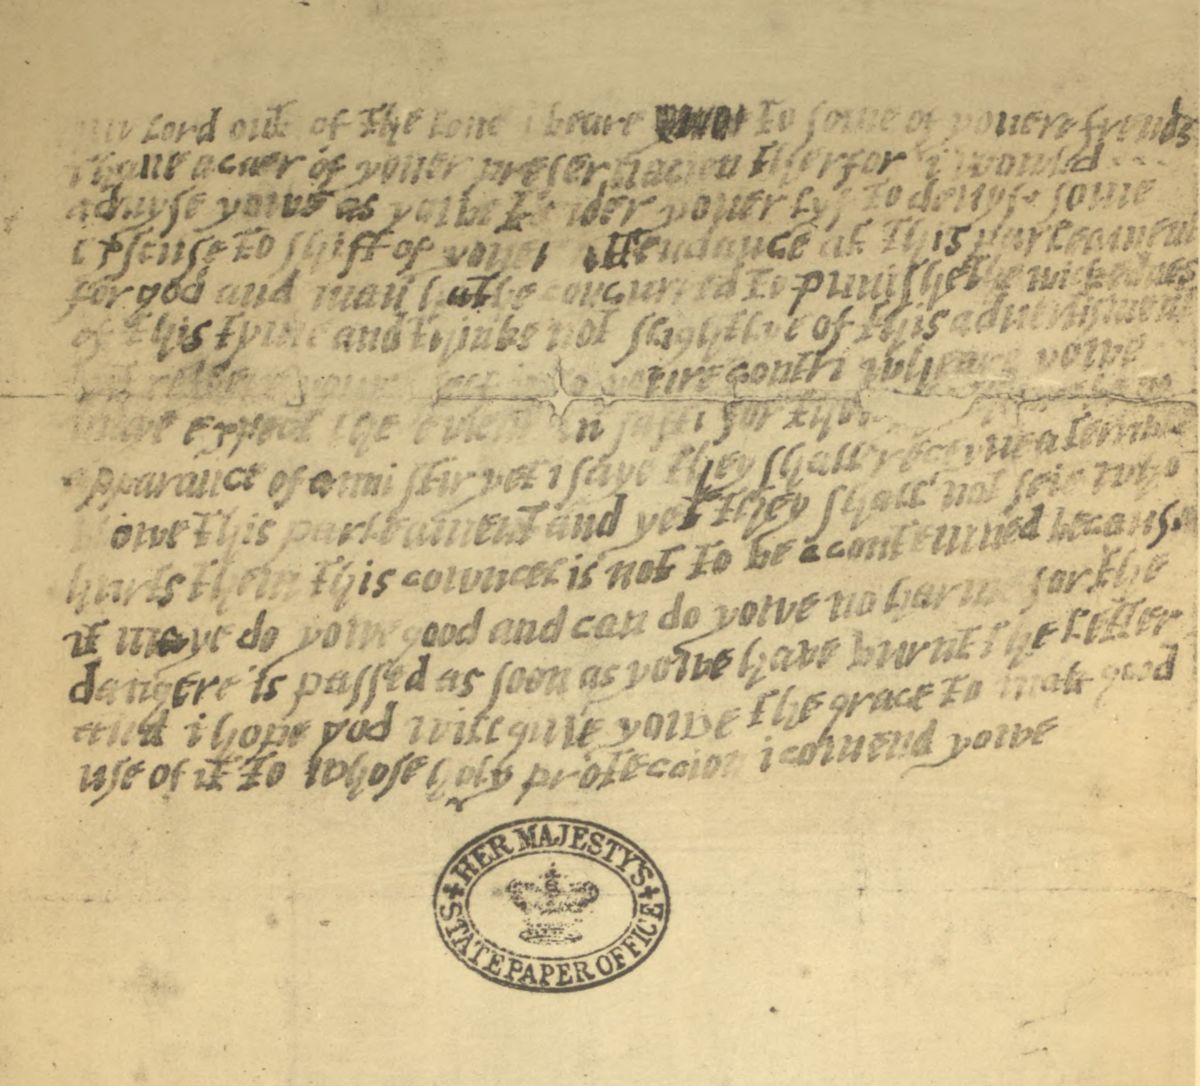 my lord out of the love i beare to some of youere frends
i have a caer of youer preservacion therfor i would
advyse yowe as yowe tender youer lyf to devyse some
excuse to shift of youer attendance at this parleament
for god and man hathe concurred to punishe the wickednes
of this tyme and thinke not slightlye of this advertisment
but youre self into contri wheare yowe
maye expect the event in safti for thowghe
apparance of anni stir yet i saye they shall receyve a terrible
blowe this parleament and yet they shall not seie who
hurts them this cowncel is not to be a contemned because
it maye do yowe good and can do yowe no harme for the
dangere is passed as soon as yowe have burnt the letter
and i hope god will give yowe the grace to mak good
use of it to whose holy proteccion i comend yowe
HER MAJESTY'S
STATE PAPER OFFICE